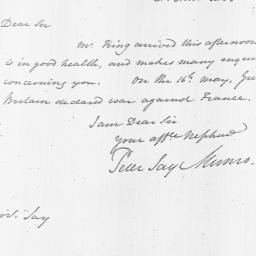 Dear Sir
Mr. King arrived this afternoon
is in good health, and makes many enqui
concerning you. On the 16th. May, Gre
Britain declared war against France.
I am Dear Sir
Your affte. Nephew
Peter Jay Munro.
Jay